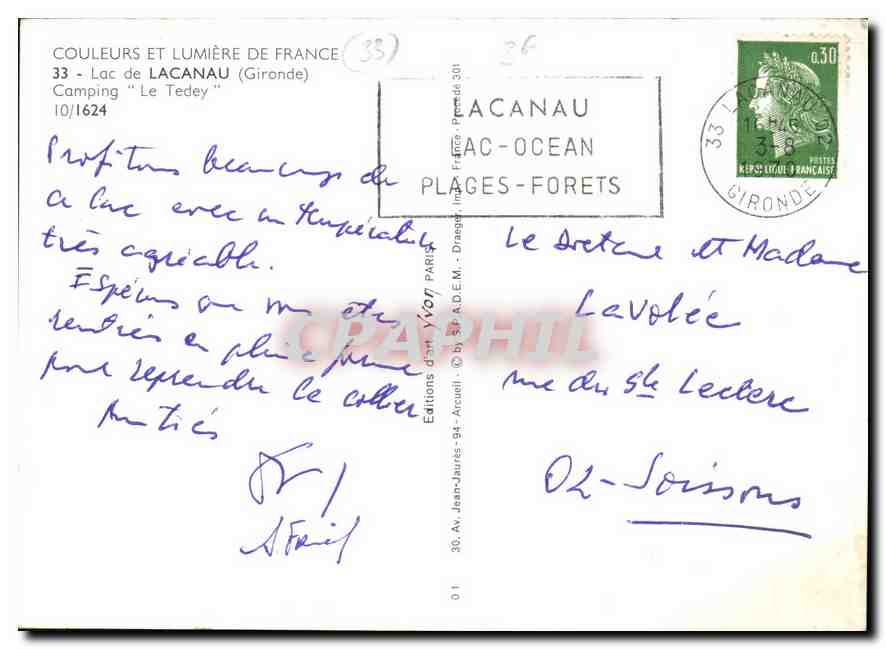 COULEURS ET LUMIÈRE DE FRANCE (33)
33 - Lac de LACANAU (Gironde)
Camping " Le Tedey "
10/1624
LACANAU
LAC-OCEAN
PLAGES-FORETS
0,30
POSTES
REPUBLIQUE FRANÇAISE
33 LACANAU 02
16H45
3-8
GIRONDE
Profitons beaucoup de
ce lac avec un température
très agréable.
Espérons que vous êtes
rentrés en pleine forme
pour reprendre le collier
Amitiés
Editions d'art Yvon PARIS
30. Av. Jean-Jaurès - 94 - Arcueil - © by S.P.A.D.E.M. - Draeger, Imp. France - Procédé 301
01
Le Docteur et Madame
Lavolée
rue du Leclerc
02-Soissons
CPAPHIL